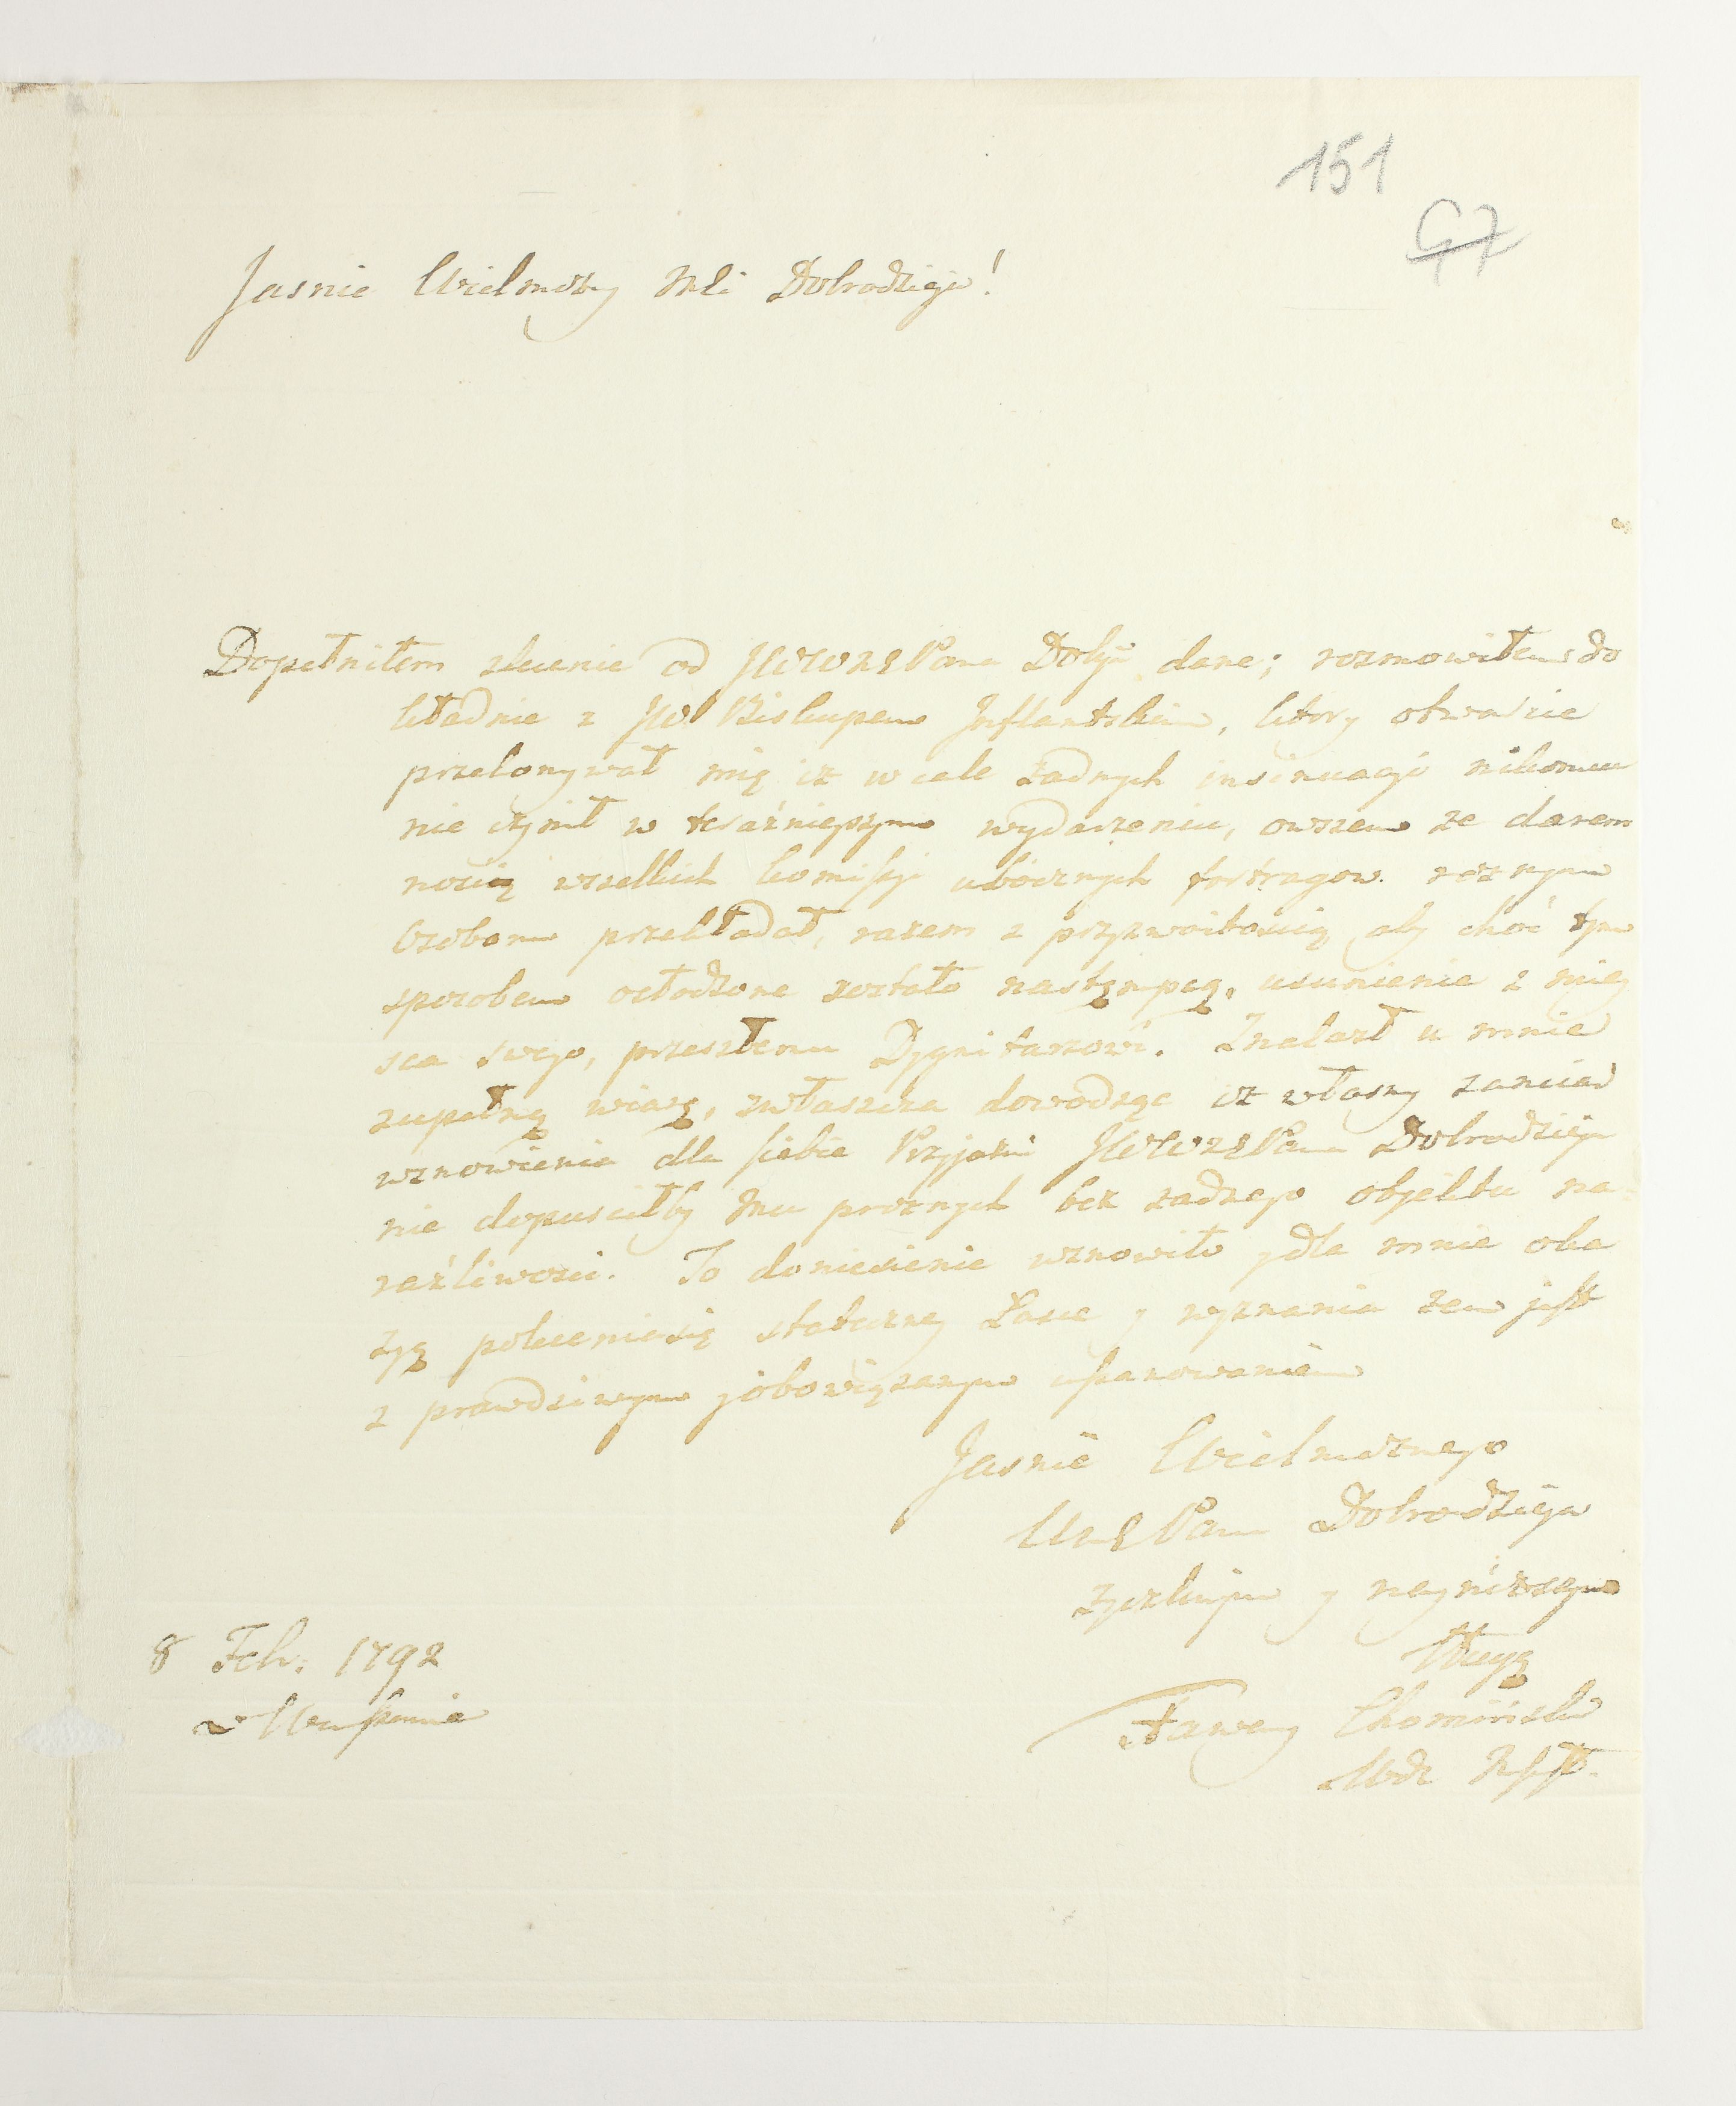 151
67
Jasnie Wielmożny Mci Dobrodzieju!
Dopełniłem zlecenie od JWWMPana Dobja dane; rozmowiłem do
kładnie z JW Biskupem Inflantskim, ktory otwarcie
przekonywał mię iż w cale żadnych insinuacji nikomu
nie czynił w teraźnieyszym wydarzeniu, owszem ze darem
noscią wszelkich komissji ubocznych roznym
Osobom przekładał, razem z przyzwoitoscią aby choć tym
sposobem osłodzone zostało nastąmpcą, usunienie z miey
sca swego, przeszłemu Dygnitarzowi. Znalazł u mnie
zupełną wiarę, zwłaszcza dowodząc iż własny zamiar
wznowienia dla siebie Przyjaźni JWWMPana Dobrodzieja
nie dopusciłby Mu proznych bez zadnego objektu na-
raźliwosci. To doniesienie wznowiło y dla mnie oka
zyą polecenia się stateczney Łasce y wyznania zem jest
z prawdziwym y obowiązanym uszanowaniem
Jasnie Wielmożnego
WMPana Dobrodzieja
zyczliwym y nayniższym
Sługą
Xawery Chominski
8 Feb: 1792
w Warszawie